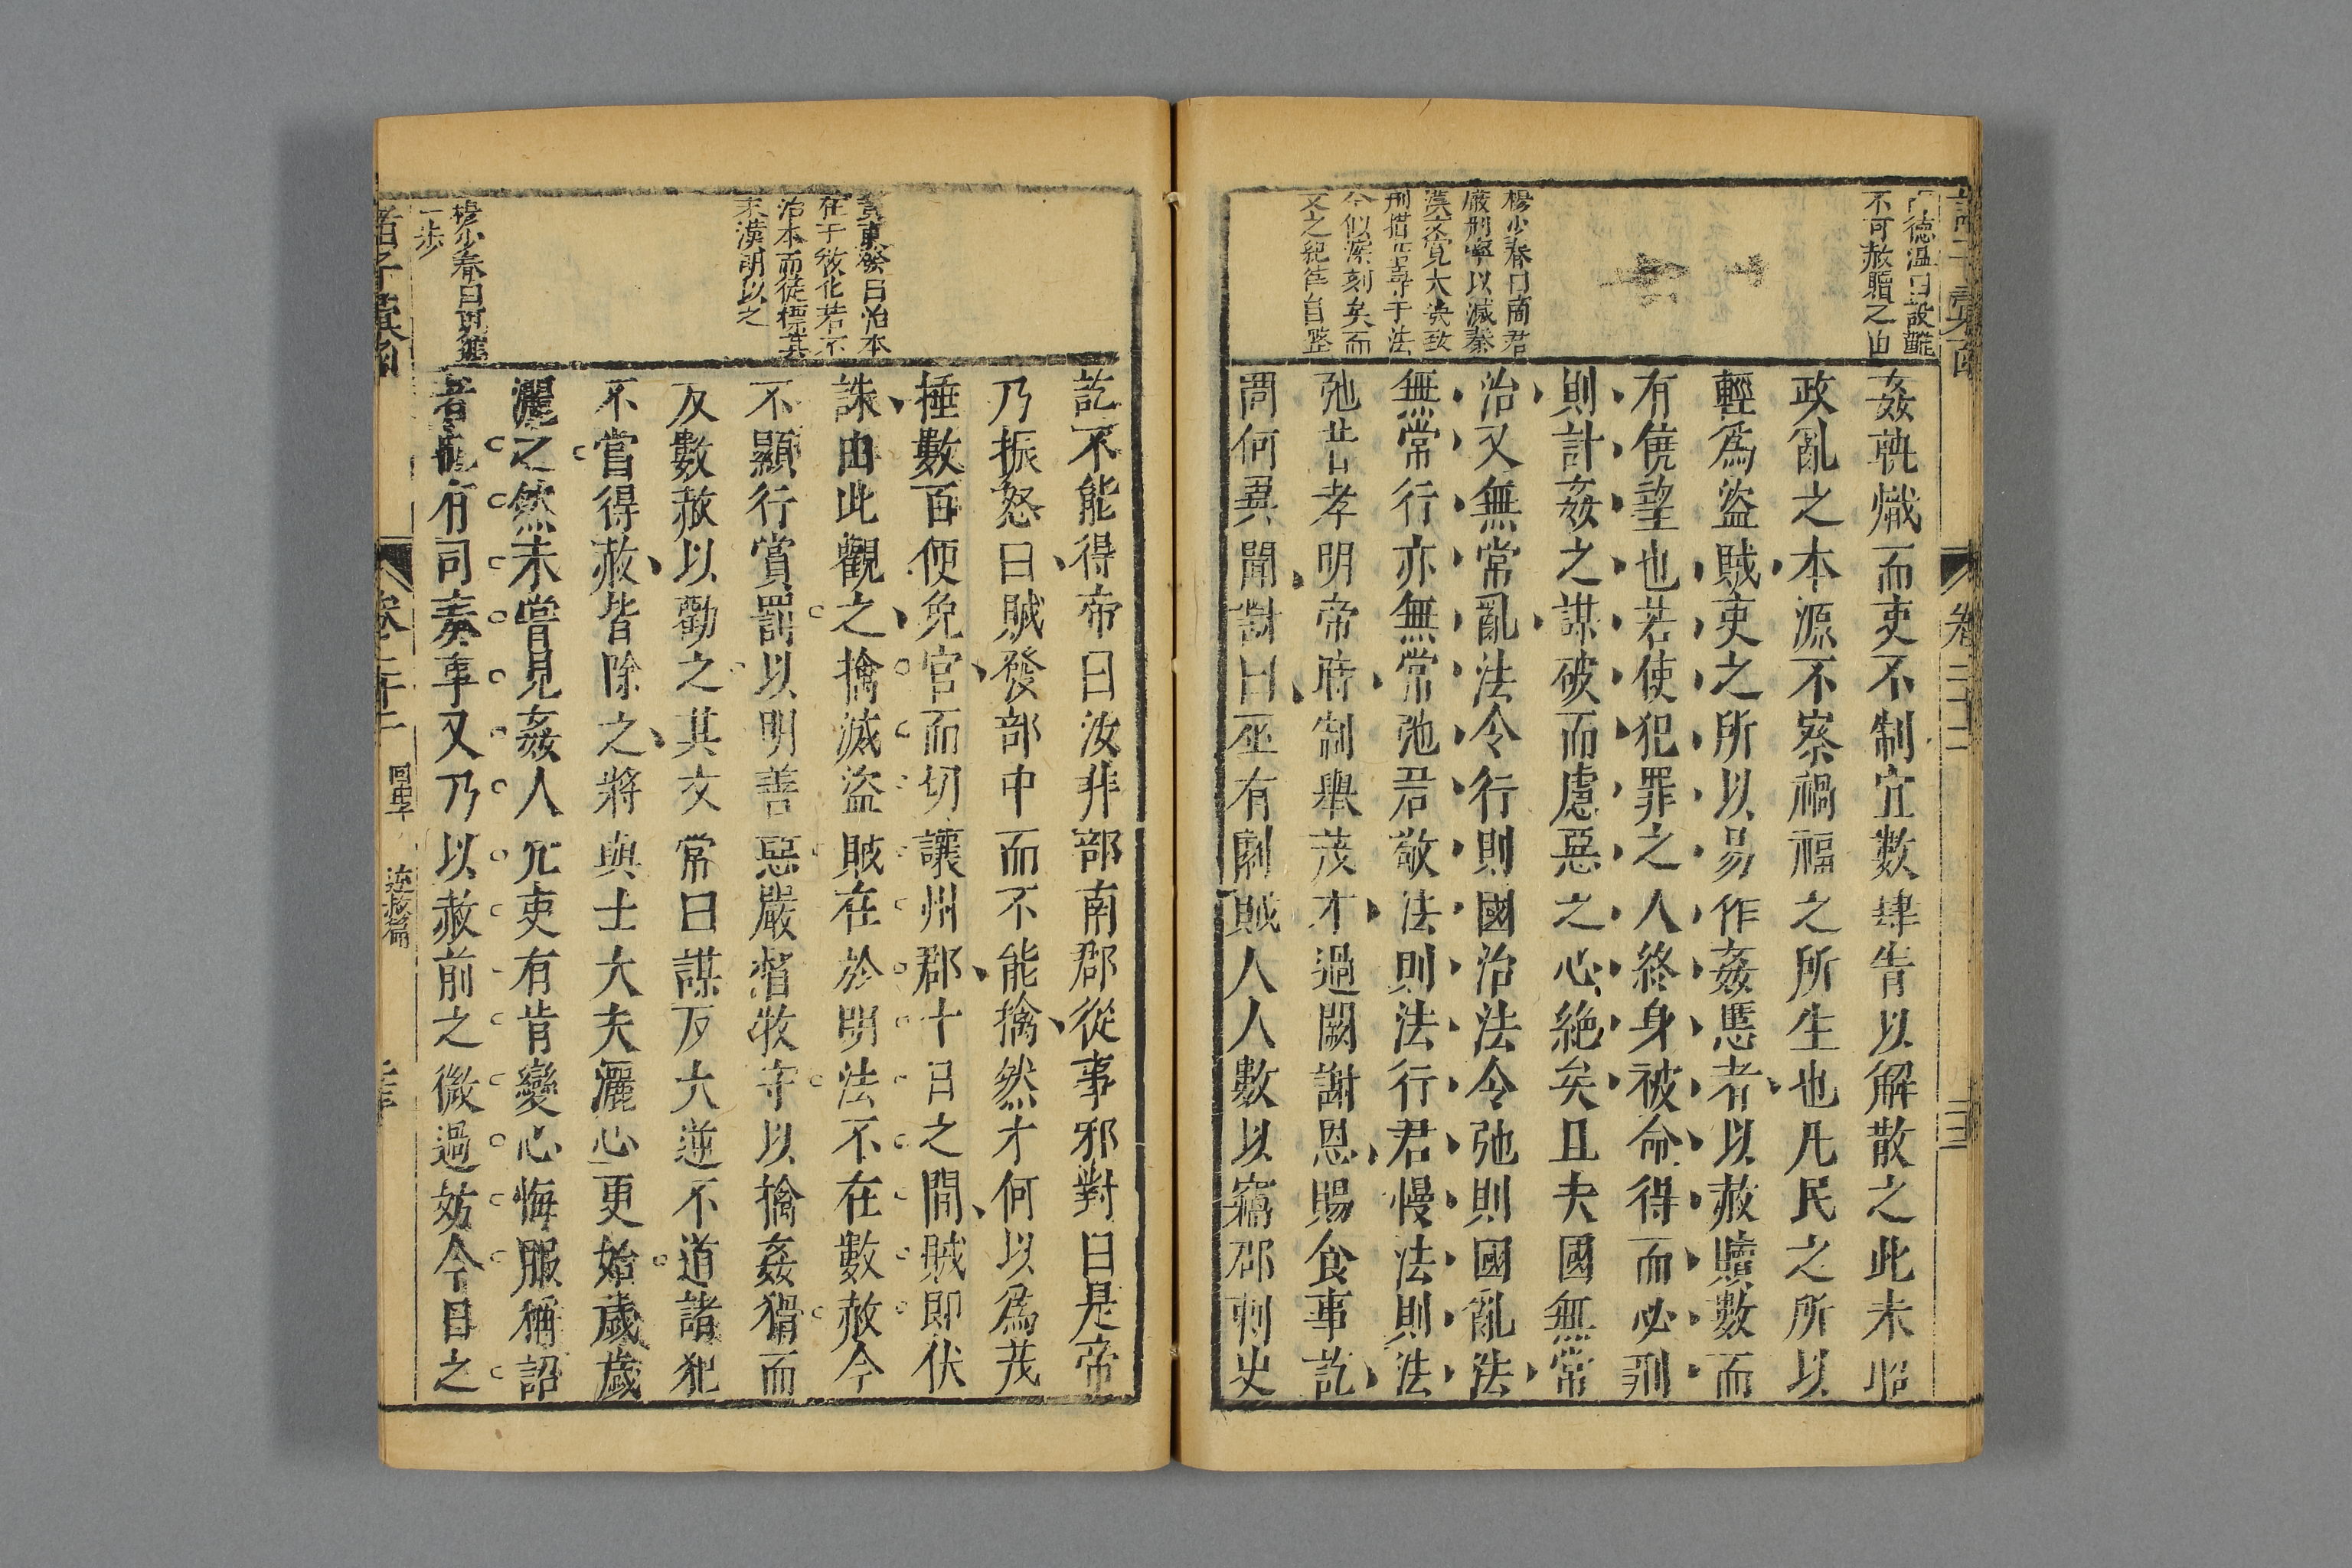 不可赦贖之由
楊少春曰商君
嚴刑寧以減秦
漢文寬大決致
刑措
今似深刻矣而
文之
自整
姦孰熾而吏不制宜數肆眚以解散之此未昭
政亂之本源不察禍福之所生也凡民之所以
輕為盜賊吏之所以易作姦慝者以赦贖數而
有僥望也若使犯罪之人終身被命得而必刑
則計姦之謀破而慮惡之心絶矣且夫國無常
治又無常亂法令行則國治法令弛則國亂法
無常行亦無常弛君敬法則法行君慢法則法
弛昔孝明帝時制舉茂才過闕謝恩賜食事訖
問何異聞對曰巫有劇賊人人數以竊郡刺史
卷二十二
訖不能得帝曰汝非部南郡從事邪對曰是帝
乃振怒曰賊發部中而不能擒然才何以為茂
捶數百便免官而切讓州郡十日之間賊即伏
誅由此觀之擒滅盜賊在於明法不在數赦今
不顯行賞罰以明善惡嚴督牧守以擒姦猾而
反數赦以勸之其文常曰謀反大逆不道諸犯
不當得赦皆除之將與士大夫灑心更始歲歲
灑之然未嘗見姦人冗吏有肯變心悔服稱詔
者也有司奏事又乃以赦前之微過妨今日之
黃東發曰治本
在于敎化若不
治本而徒標其
末漢明以之
楊少春曰更進
一步
諸子彙函
卷二十二
回中子
述赦篇